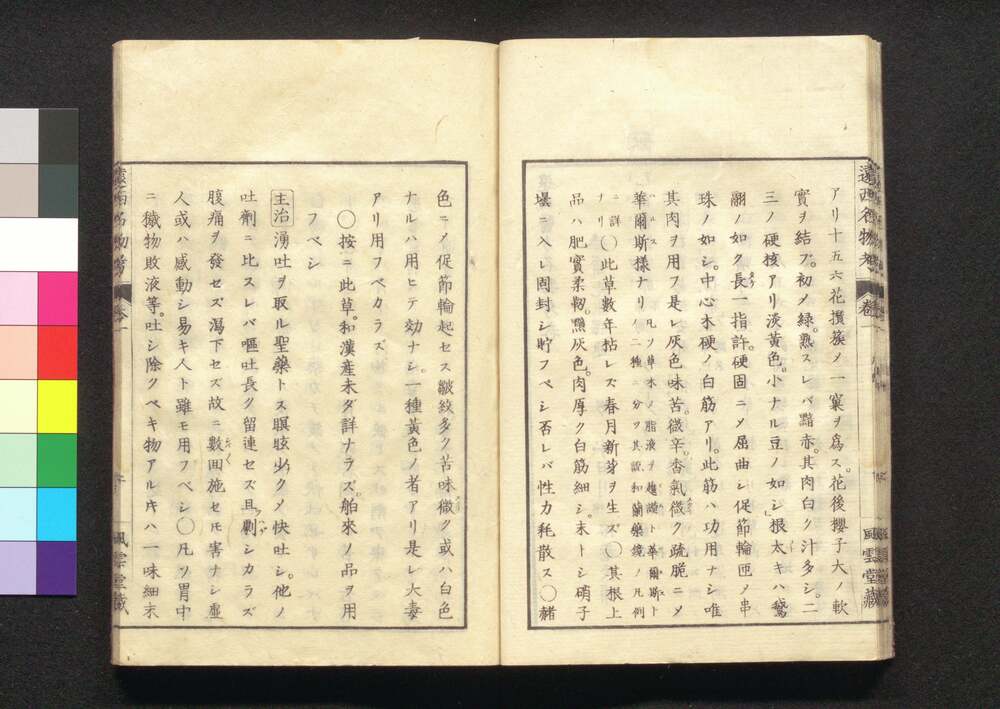 アリ十五六花攅簇メ一窠ヲ爲ス。花後櫻子大ノ軟
實ヲ結ブ。初メ綠。熟スレバ黯赤。其肉白ク汁多シ。二
三ノ硬核アリ淡黃色。小ナル豆ノ如シ」根太キハ鵞
翮ノ如ク長一指許。硬固ニメ屈曲シ促節輪匝ノ串
珠ノ如シ。中心木硬ノ白筋アリ。此筋ハ功用ナシ唯
其肉ヲ用フ是レ灰色味苦。微辛。香氣微ク疏脆ニメ
華爾斯樣ナリ 凡ソ草木ノ脂液ヲ 華爾斯ト
ノ二種ニ分ツ其説和蘭藥鏡ノ凡例
ナリ ニ詳 〇此草數年枯レズ春月新芽ヲ生ズ〇其根上
品ハ肥實柔靱。黯灰色。肉厚ク白筋細シ。末トシ硝子
壜ニ入レ固封シ貯フベシ否レバ性力耗散ス〇赭
遠西名物考 卷一 風雲堂藏
色ニノ促節輪起セス皺紋多ク苦味微ク或ハ白色
ナルハ用ヒテ効ナシ。一種黃色ノ者アリ是レ大毒
アリ用フベカラズ
〇按ニ此草。和漢産未ダ詳ナラズ。舶來ノ品ヲ用
フベシ
主治 湧吐ヲ取ル聖藥トス瞑眩少クメ快吐シ。他ノ
吐劑ニ比スレバ嘔吐長ク留連セズ且劇シカラズ
腹痛ヲ發セズ瀉下セズ故ニ數囬施セ𪜈害ナシ虛
人或ハ感動シ易キ人ト雖モ用フベシ〇凡ソ胃中
ニ穢物敗液等。吐シ除クベキ物アルキハ一味細末
遠西名物考 卷一 風雲堂藏